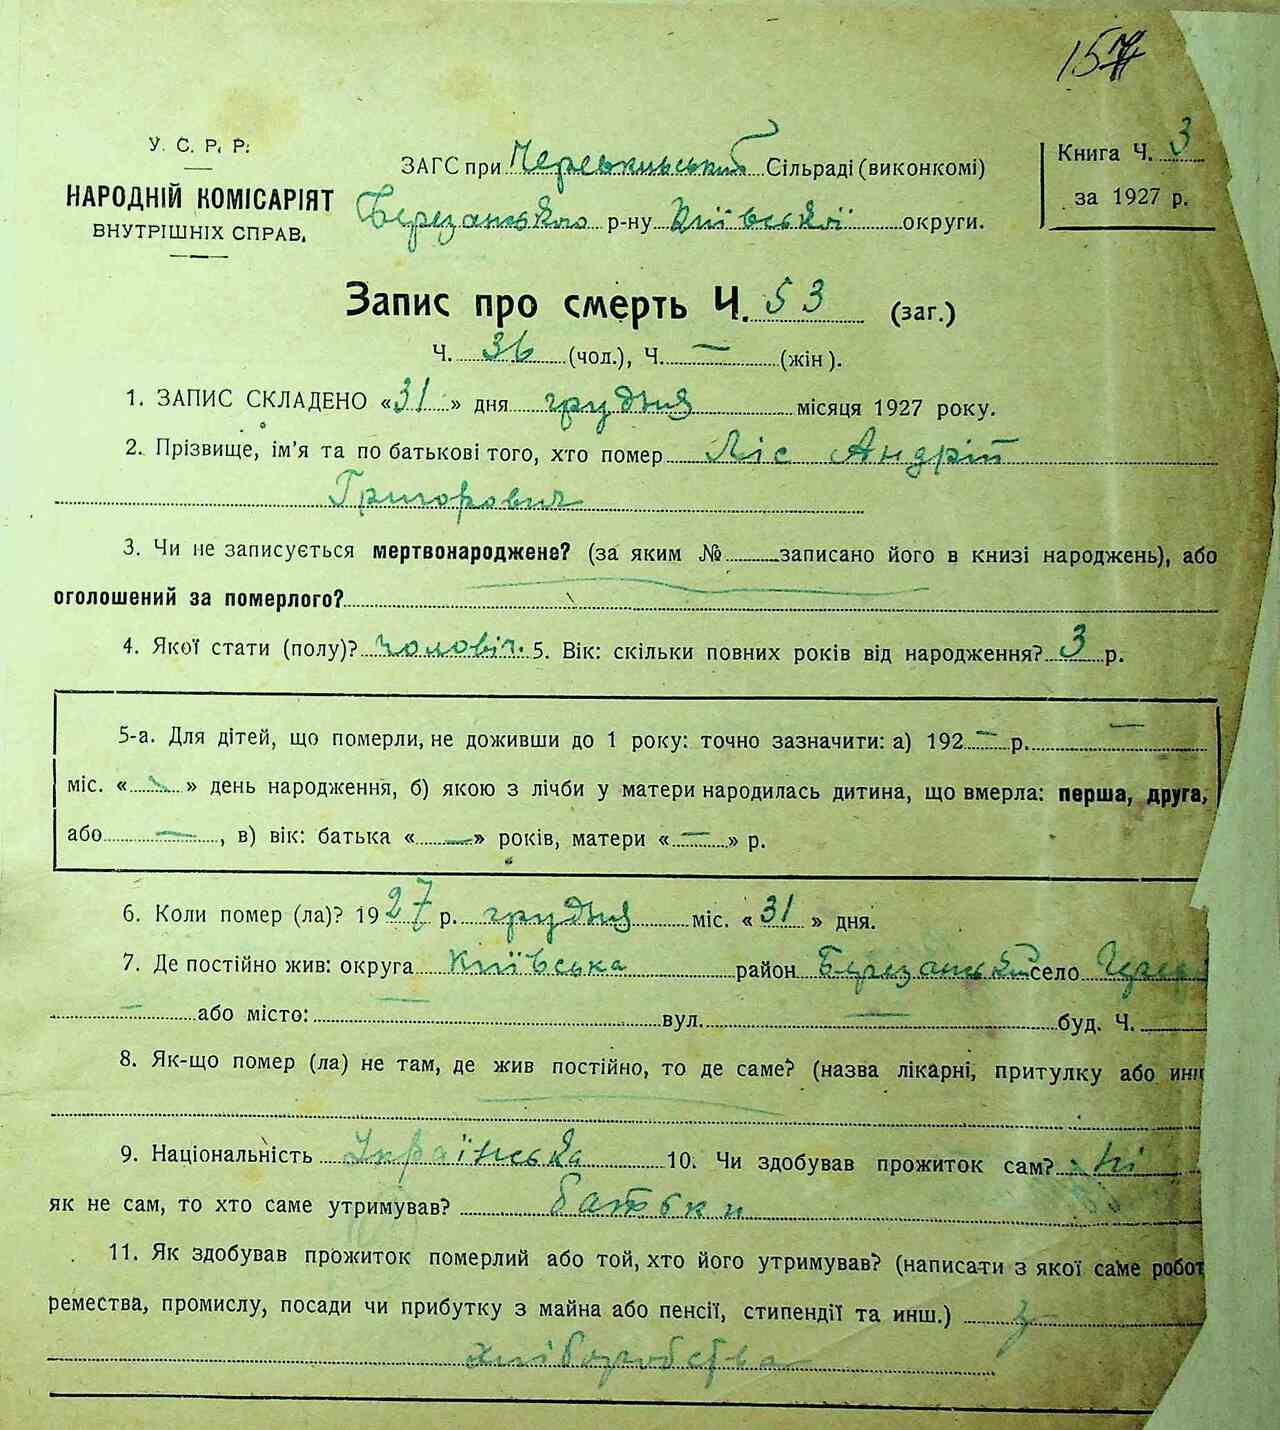 157
У. С. Р. Р.
НАРОДНІЙ КОМІСАРІЯТ
ВНУТРІШНІХ СПРАВ.
ЗАГС при Черевкивській Сільраді (виконкомі)
Березанського р-ну Київської округи.
Книга Ч. 3
за 1927 р.
Запис про смерть Ч. 53 (заг.)
Ч. 36 (чол.), Ч. — (жін).
1. ЗАПИС СКЛАДЕНО «31» дня грудня місяця 1927 року.
2. Прізвище, ім'я та по батькові того, хто помер Ліс Андрій
Григорович
3. Чи не записується мертвонароджене? (за яким № записано його в книзі народжень), або
оголошений за померлого?
4. Якої стати (полу)? чоловіч. 5. Вік: скільки повних років від народження? 3 р.
5-а. Для дітей, що померли, не доживши до 1 року: точно зазначити: а) 192 — р. —
міс. « — » день народження, б) якою з лічби у матери народилась дитина, що вмерла: перша, друга,
або —, в) вік: батька « — » років, матери « — » р.
6. Коли помер (ла)? 1927 р. грудня міс. «31» дня.
7. Де постійно жив: округа Київська район Березанський село
— або місто: — вул. — буд. Ч.
8. Як-що помер (ла) не там, де жив постійно, то де саме? (назва лікарні, притулку або инш
9. Національність Українська 10. Чи здобував прожиток сам? ні
як не сам, то хто саме утримував? батьки
11. Як здобував прожиток померлий або той, хто його утримував? (написати з якої саме робот
ремества, промислу, посади чи прибутку з майна або пенсії, стипендії та инш.) з
хліборобства